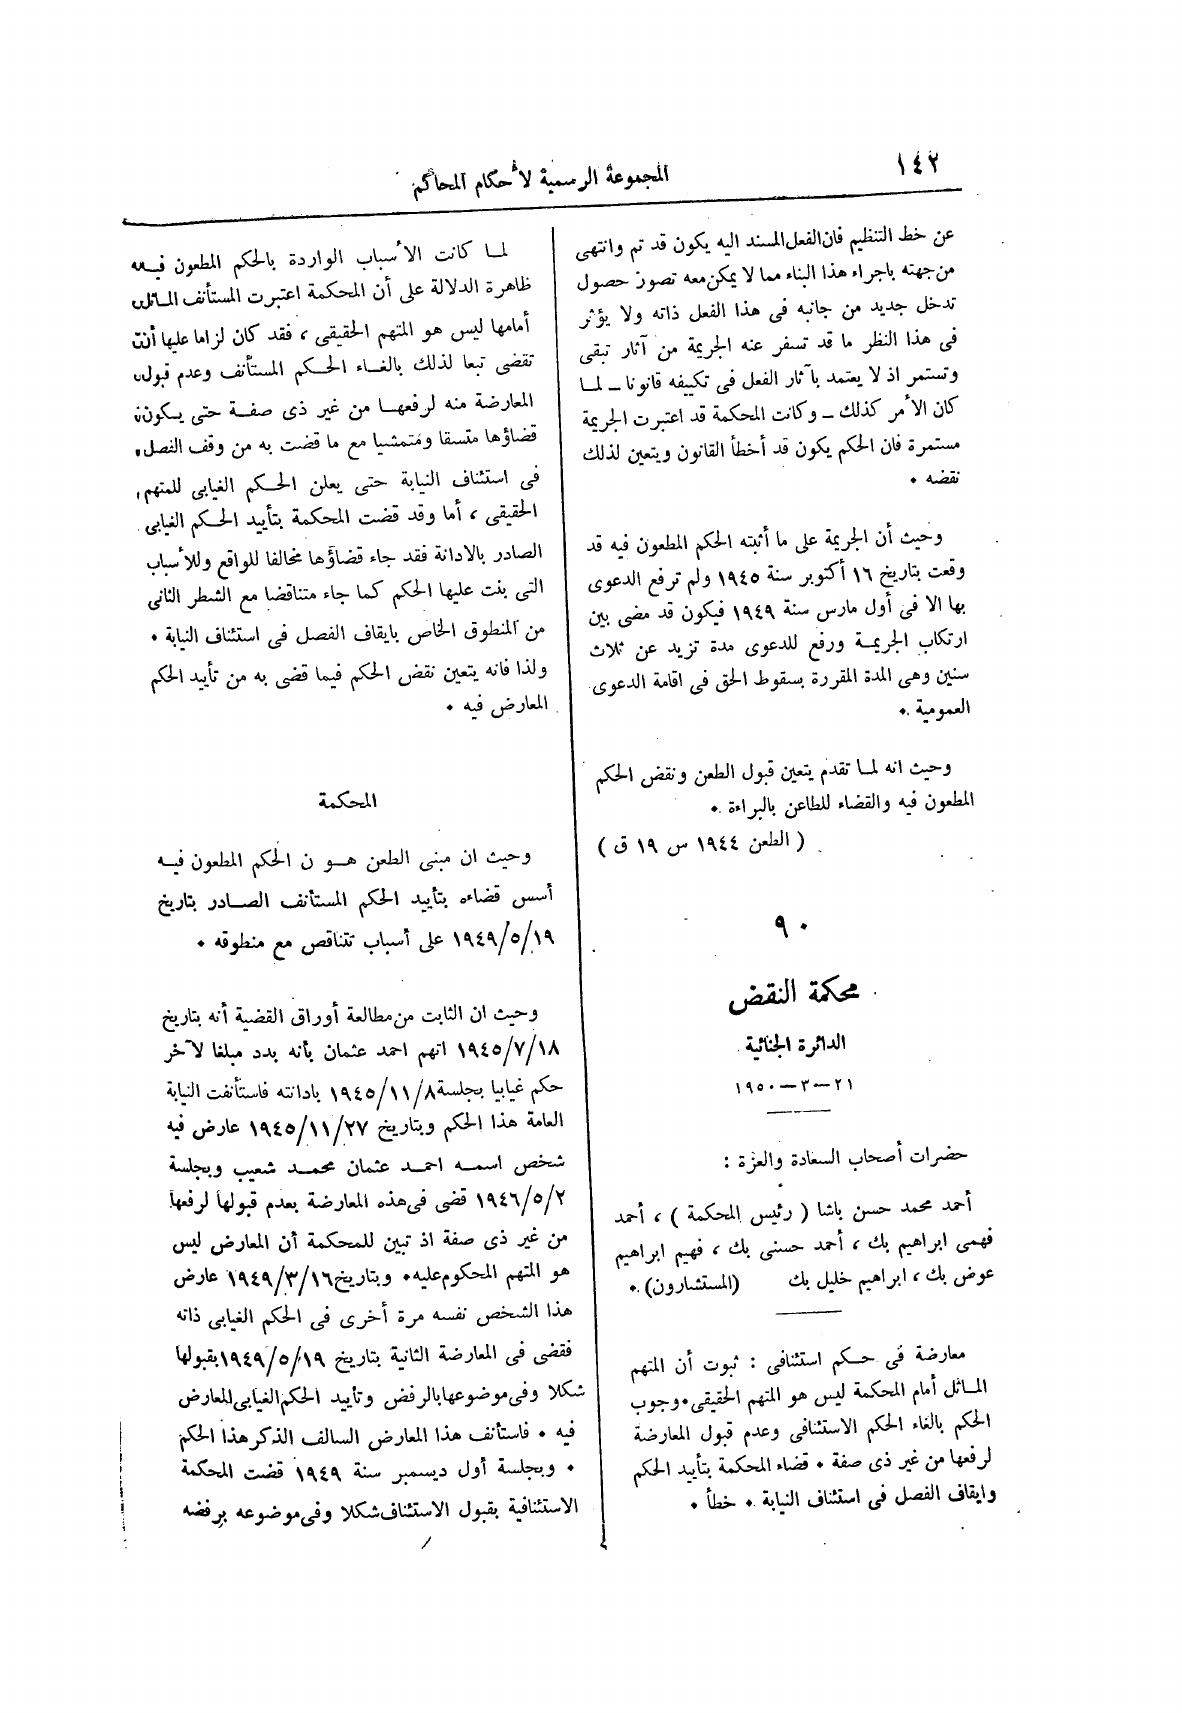 ١٤٢
المجموعة الرسمية لأحكام المحاكم
عن خط التنظيم فان الفعل المسند اليه يكون قد تم وانتهى
من جهته باجراء هذا البناء مما لا يمكن معه تصور حصول
تدخل جديد من جانبه فى هذا الفعل ذاته ولا يؤثر
فى هذا النظر ما قد تسفر عنه الجريمة من آثار تبقى
وتستمر اذ لا يعتمد بآثار الفعل فى تكييفه قانونا ــ لما
كان الأمر كذلك ــ وكانت المحكمة قد اعتبرت الجريمة
مستمرة فان الحكم يكون قد أخطأ القانون ويتعين لذلك
نقضه ٠
وحيث أن الجريمة على ما أثبته الحكم المطعون فيه قد
وقعت بتاريخ ١٦ أكتوبر سنة ١٩٤٥ ولم ترفع الدعوى
بها الا فى أول مارس سنة ١٩٤٩ فيكون قد مضى بين
ارتكاب الجريمة ورفع للدعوى مدة تزيد عن ثلاث
سنين وهى المدة المقررة بسقوط الحق فى اقامة الدعوى
العمومية ٠
وحيث انه لما تقدم يتعين قبول الطعن ونقض الحكم
المطعون فيه والقضاء للطاعن بالبراءة ٠
( الطعن ١٩٤٤ س ١٩ ق )
٩٠
محكمة النقض
الدائرة الجنائية
٢١ــ٣ــ١٩٥٠
حضرات أصحاب السعادة والعزة :
أحمد محمد حسن باشا ( رئيس المحكمة ) ، أحمد
فهمى ابراهيم بك ، أحمد حسنى بك ، فهيم ابراهيم
عوض بك ، ابراهيم خليل بك (المستشارون) ٠
معارضة فى حكم استئنافى : ثبوت أن المتهم
الماثل أمام المحكمة ليس هو المتهم الحقيقى٠ وجوب
الحكم بالغاء الحكم الاستئنافى وعدم قبول المعارضة
لرفعها من غير ذى صفة ٠ قضاء المحكمة بتأييد الحكم
وايقاف الفصل فى استئناف النيابة ٠ خطأ ٠
لما كانت الأسباب الواردة بالحكم المطعون فيه
ظاهرة الدلالة على أن المحكمة اعتبرت المستأنف الماثل
أمامها ليس هو المتهم الحقيقى ، فقد كان لزاما عليها أن
تقضى تبعا لذلك بالغاء الحكم المستأنف وعدم قبول
المعارضة منه لرفعها من غير ذى صفة حتى يكون
قضاؤها متسقا ومتمشيا مع ما قضت به من وقف الفصل
فى استئناف النيابة حتى يعلن الحكم الغيابى للمتهم
الحقيقى ، أما وقد قضت المحكمة بتأييد الحكم الغيابى
الصادر بالادانة فقد جاء قضاؤها مخالفا للواقع وللأسباب
التى بنت عليها الحكم كما جاء متناقضا مع الشطر الثانى
من المنطوق الخاص بايقاف الفصل فى استئناف النيابة ٠
ولذا فانه يتعين نقض الحكم فيما قضى به من تأييد الحكم
المعارض فيه ٠
المحكمة
وحيث ان مبنى الطعن هو ن الحكم المطعون فيه
أسس قضاءه بتأييد الحكم المستأنف الصادر بتاريخ
١٩٤٩/٥/١٩ على أسباب تتناقص مع منطوقه ٠
وحيث ان الثابت من مطالعة أوراق القضية أنه بتاريخ
١٩٤٥/٧/١٨ اتهم احمد عثمان بأنه بدد مبلغا لآخر
حكم غيابيا بجلسة ١٩٤٥/١١/٨ بادانته فاستأنفت النيابة
العامة هذا الحكم وبتاريخ ١٩٤٥/١١/٢٧ عارض فيه
شخص اسمه احمد عثمان محمد شعيب وبجلسة
١٩٤٦/٥/٢ قضى فى هذه المعارضة بعدم قبولها لرفعها
من غير ذى صفة اذ تبين للمحكمة أن المعارض ليس
هو المتهم المحكوم عليه٠ وبتاريخ ١٩٤٩/٣/١٦ عارض
هذا الشخص نفسه مرة أخرى فى الحكم الغيابى ذاته
فقضى فى المعارضة الثانية بتاريخ ١٩٤٩/٥/١٩ بقبولها
شكلا وفى موضوعها بالرفض وتأييد الحكم الغيابى المعارض
فيه ٠ فاستأنف هذا المعارض السالف الذكر هذا الحكم
٠ وبجلسة أول ديسمبر سنة ١٩٤٩ قضت المحكمة
الاستئنافية بقبول الاستئناف شكلا وفى موضوعه برفضه